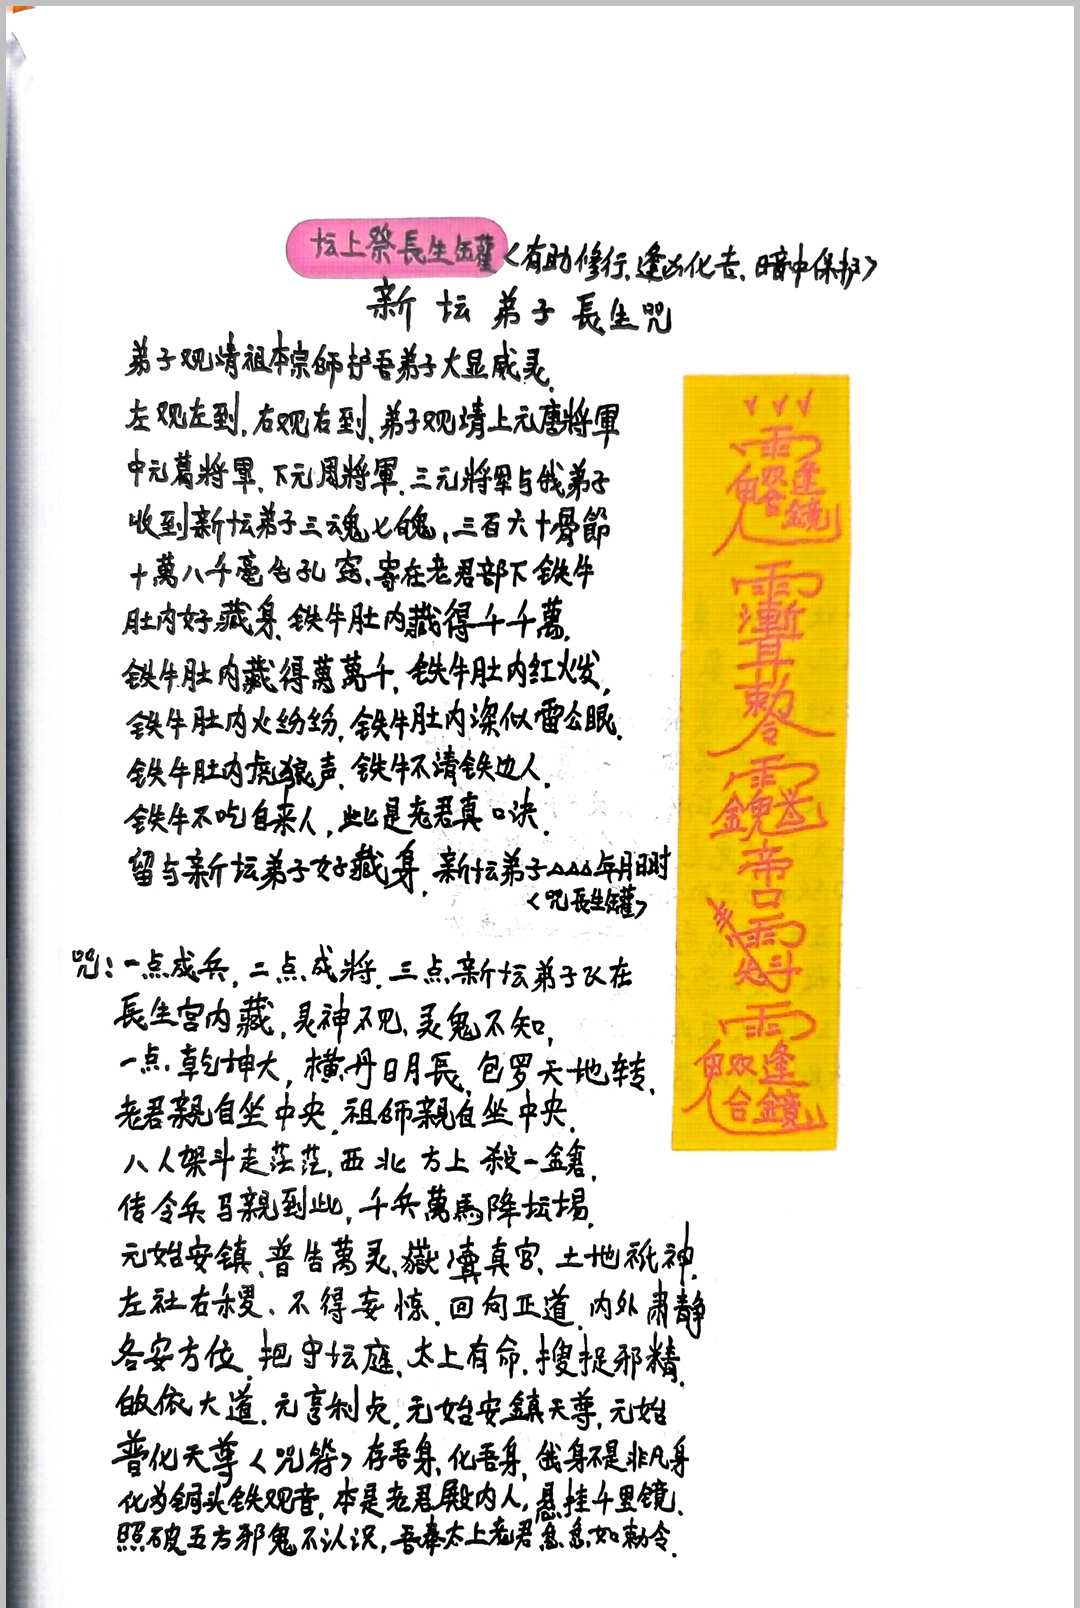 坛上祭長生罐<有助修行,逢凶化吉、暗中保护>
新坛弟子長生咒
弟子观请祖本宗师护吾弟子大显威灵.
左观左到,右观右到,弟子观请上元唐將軍
中元葛將軍.下元周將軍.三元將軍与我弟子
收到新坛弟子三魂七魄,三百六十骨節
十萬八千毫毛孔窍、寄在老君部下铁牛
肚内好藏身、铁牛肚内藏得千千萬.
铁牛肚内藏得萬萬千,铁牛肚内红火发,
铁牛肚内火纷纷,铁牛肚内深似雷公眼.
铁牛肚内虎狼声.铁牛不请铁边人.
铁牛不吃自来人,此是老君真口决.
留与新坛弟子好藏身,新坛弟子△△△年月日时
<咒長生罐>
咒:一点成兵,二点成將.三点新坛弟子以在
長生宫内藏,灵神不见、灵鬼不知,
一点.乾坤大,横丹日月長、包罗天地转.
老君親自坐中央.祖师親自坐中央.
八人架斗走茫茫,西北方上殺一鎗,
传令兵马親到此,千兵萬馬降坛場.
元始安镇、普告萬灵、嶽瀆真官、土地祇神.
左社右稷、不得妄惊.回向正道.内外肃静
各安方位,把守坛庭、太上有命,搜捉邪精.
皈依大道.元亨利贞,元始安鎮天尊,元始
普化天尊<咒符>存吾身、化吾身,我身不是非凡身
化为铜头铁观音,本是老君殿内人,悬挂千里镜.
照破五方邪鬼不认识,吾奉太上老君急急如勅令.
雨
鬼双合逢鏡
雨
漸
耳
勅令
雨
金
帝
口
雨
斗
雨
鬼双逢
合鏡